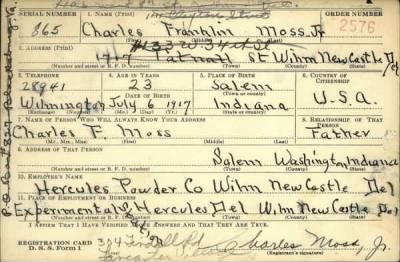 SERIAL NUMBER 1. NAME (Print) ORDER NUMBER
865 Charles Franklin Moss, Jr 2576
(First) (Middle) (Last)
2. ADDRESS (Print)
1133 W. 34th St
St Wilm New Castle Del
(Number and street or R. F. D. number) (Town) (County) (State)
3. TELEPHONE 4. AGE IN YEARS 5. PLACE OF BIRTH 6. COUNTRY OF CITIZENSHIP
28941 23 Salem
DATE OF BIRTH (Town or county)
Wilmington July 6 1917 Indiana U.S.A.
(Exchange) (Number) (Mo.) (Day) (Yr.) (State or country)
7. NAME OF PERSON WHO WILL ALWAYS KNOW YOUR ADDRESS 8. RELATIONSHIP OF THAT PERSON
Charles F. Moss Father
(Mr., Mrs., Miss) (First) (Middle) (Last)
9. ADDRESS OF THAT PERSON
Salem Washington Indiana
(Number and street or R. F. D. number) (Town) (County) (State)
10. EMPLOYER'S NAME
Hercules Powder Co Wilm New Castle Del
11. PLACE OF EMPLOYMENT OR BUSINESS
Experimental Hercules Del Wilm New Castle Del
(Number and street or R. F. D. number) (Town) (County) (State)
I AFFIRM THAT I HAVE VERIFIED
REGISTRATION CARD
D. S. S. Form 1 Charles Moss, Jr.
(Registrant's signature)